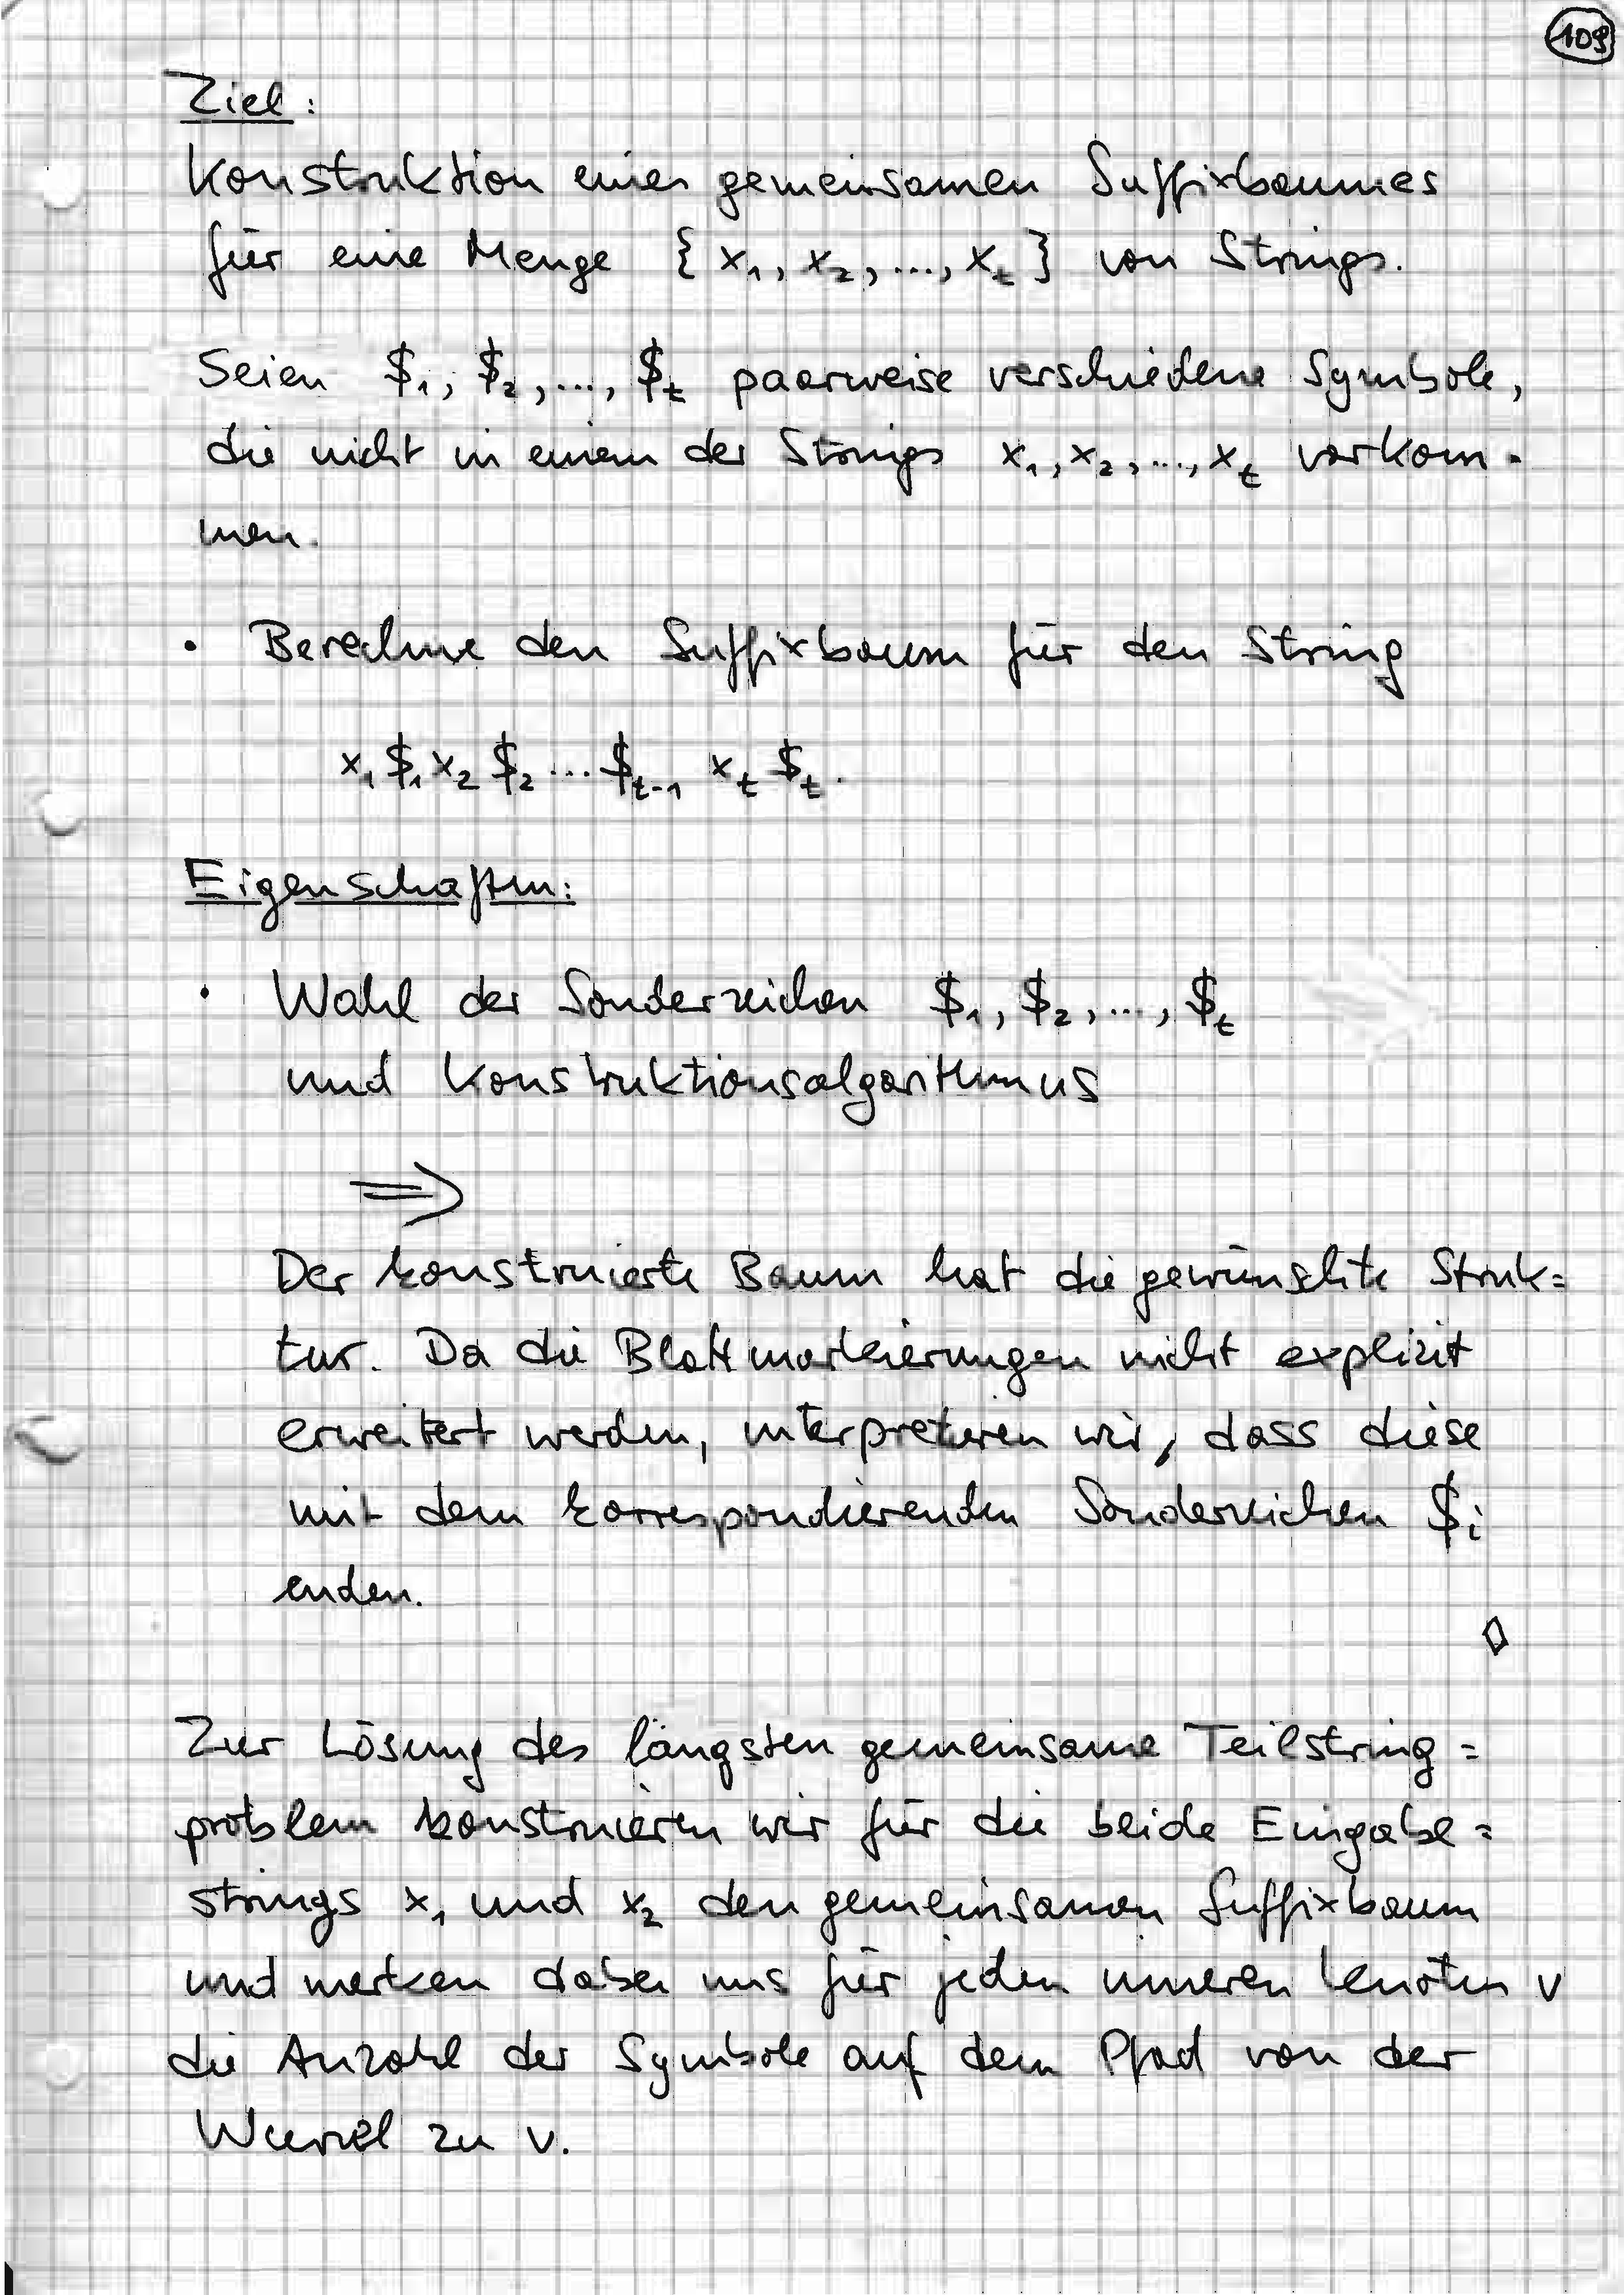 109
Ziel:
Konstruktion eines gemeinsamen Suffixbaumes
für eine Menge { x₁, x₂, ..., xₜ } von Strings.
Seien $₁, $₂, ..., $ₜ paarweise verschiedene Symbole,
die nicht in einem der Strings x₁, x₂, ..., xₜ vorkom-
men.
• Berechne den Suffixbaum für den String
x₁ $₁ x₂ $₂ ... $ₜ₋₁ xₜ $ₜ.
Eigenschaften:
• Wahl der Sonderzeichen $₁, $₂, ..., $ₜ
und Konstruktionsalgorithmus
⇒
Der konstruierte Baum hat die gewünschte Struk=
tur. Da die Blattmarkierungen nicht explizit
erweitert werden, interpretieren wir, dass diese
mit dem korrespondierenden Sonderzeichen $ᵢ
enden.
◊
Zur Lösung des längsten gemeinsame Teilstring=
problem konstruieren wir für die beide Eingabe=
strings x₁ und x₂ den gemeinsamen Suffixbaum
und merken dabei uns für jeden inneren Knoten v
die Anzahl der Symbole auf dem Pfad von der
Wurzel zu v.